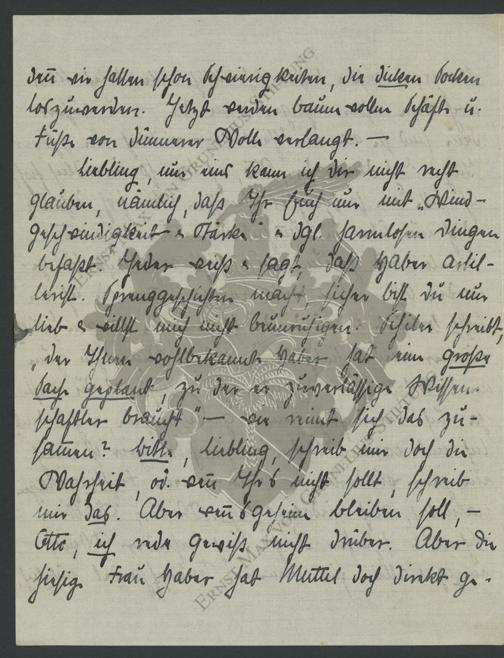 denn wir hatten schon Schwierigkeiten, die dicken Socken
loszuwerden. Jetzt werden baumwollene Schäfte u.
Füße von dünnerer Wolle verlangt. —
Liebling, nur eins kann ich dir nicht recht
glauben, nämlich, daß Ihr Euch nur mit „Wind-
geschwindigkeit & Stärke“ & dgl. harmlosen Dingen
befaßt. Jeder weiß & sagt, daß Haber artil-
lerist. Sprenggeschichten macht sicher bist du nur
lieb & willst mich nicht beunruhigen. schreibt,
„der Ihnen wohlbekannte Haber hat eine große
Sache geplant, zu der er zuverlässige Wissen-
schaftler braucht“ — wie reimt sich das zu-
sammen? Bitte, Liebling, schreib mir doch die
Wahrheit, od. wenn Ihr's nicht sollt, schreib
mir das. Aber wenn's geheim bleiben soll, —
Otto, ich rede gewiß nicht drüber. Aber die
hiesige Frau Haber hat Muttel doch direkt ge-
ERNST MAX VON GRUNELIUS-STIFTUNG
ERNST MAX VON GRUNELIUS-STIFTUNG